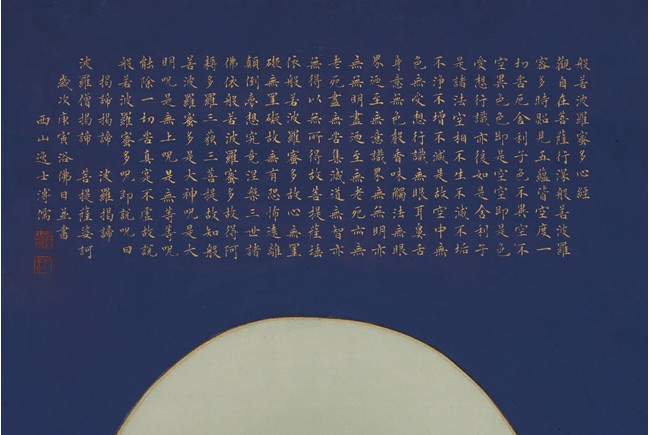 般若波羅蜜多心經
觀自在菩薩行深般若波羅
蜜多時照見五蘊皆空度一
切苦厄舍利子色不異空不
空異色色即是空空即是色
受想行識亦復如是舍利子
是諸法空相不生不滅不垢
不淨不增不減是故空中無
色無受想行識無眼耳鼻舌
身意無色聲香味觸法無眼
界迺至無意識界無無明亦
無無明盡迺至無老死亦無
老死盡無苦集滅道無智亦
無得以無所得故菩提薩埵
依般若波羅蜜多故心無罣
礙無罣礙故無有恐怖遠離
顛倒夢想究竟涅槃三世諸
佛依般若波羅蜜多故得阿
耨多羅三藐三菩提故知般
若波羅蜜多是大神呪是大
明呪是無上呪是無等等呪
能除一切苦真實不虛故說
般若波羅蜜多呪即說呪曰
揭諦揭諦 波羅揭諦
波羅僧揭諦 菩提薩婆訶
歲次庚寅浴佛日並書
西山逸士溥儒